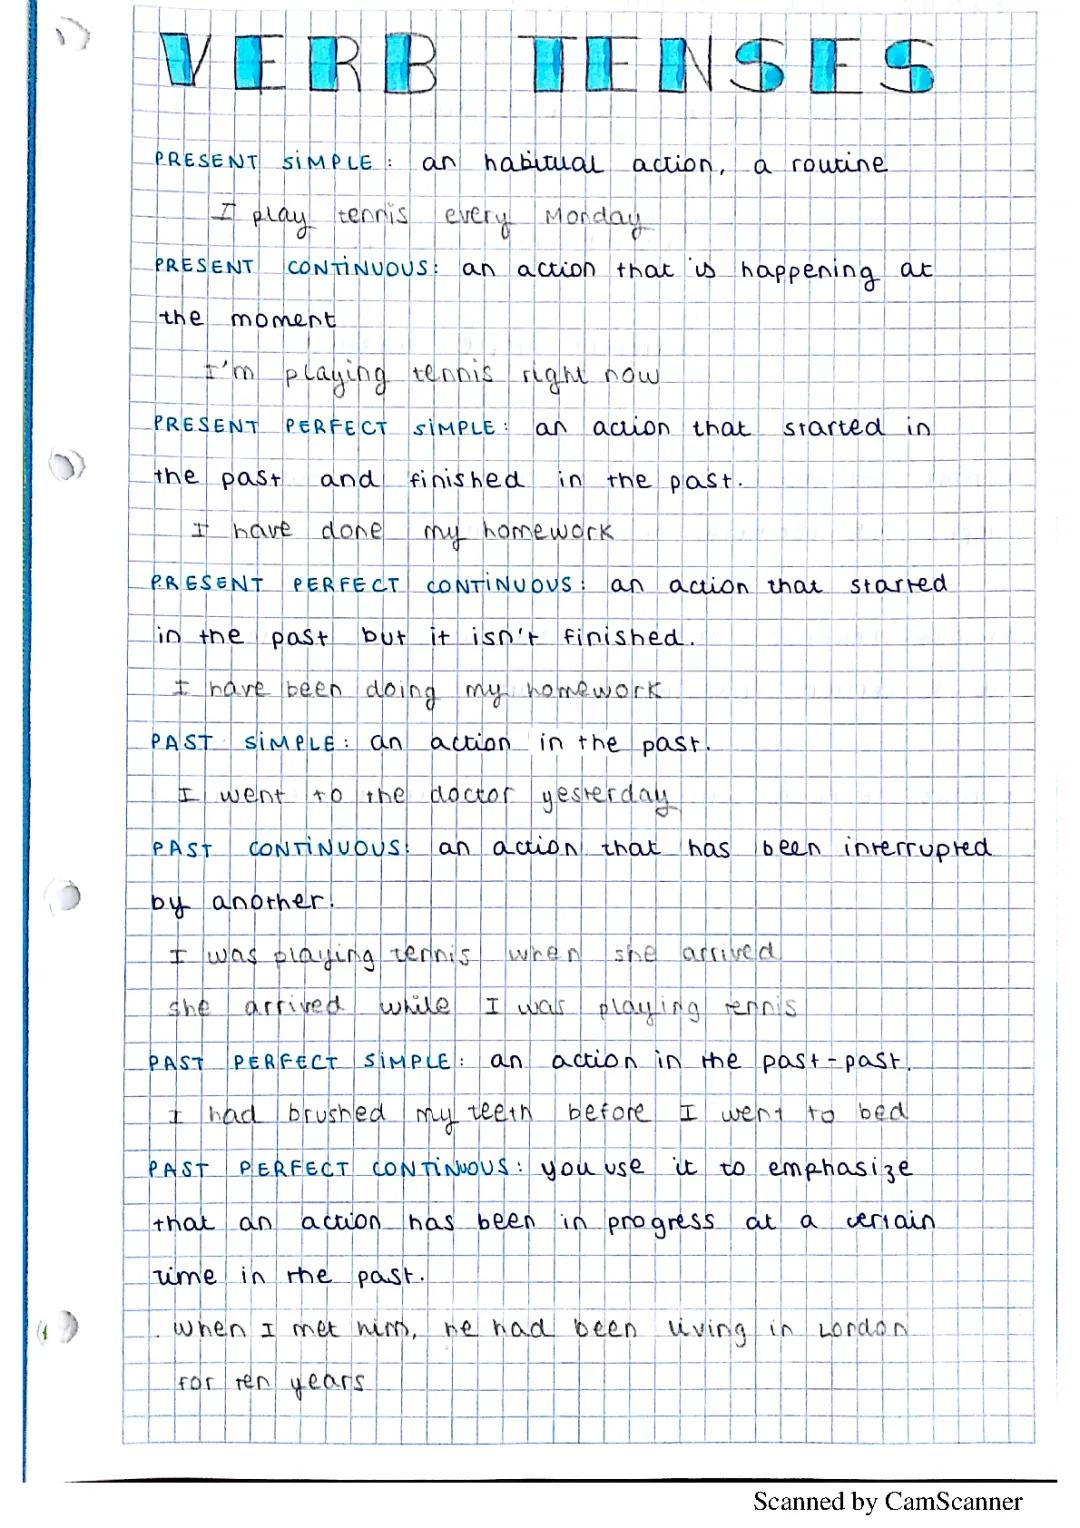 VERB TENSES
PRESENT SIMPLE: an habitual action, a routine
I play tennis every Monday
PRESENT CONTINUOUS: an action that is happening at
the moment
I'm playing tennis right now
PRESENT PERFECT SIMPLE: an action that started in
the past and finished in the past.
I have done my homework
PRESENT PERFECT CONTINUOUS: an action that started
in the past but it isn't finished.
I have been doing my homework
PAST SIMPLE: an action in the past.
I went to the doctor yesterday
PAST CONTINUOUS: an action that has been interrupted
by another.
I was playing tennis when she arrived
she arrived while I was playing tennis
PAST PERFECT SIMPLE: an action in the past-past.
I had brushed my teeth before I went to bed
PAST PERFECT CONTINUOUS: you use it to emphasize
that an action has been in progress at a certain
time in the past.
When I met him, he had been living in London
for ten years
Scanned by CamScanner